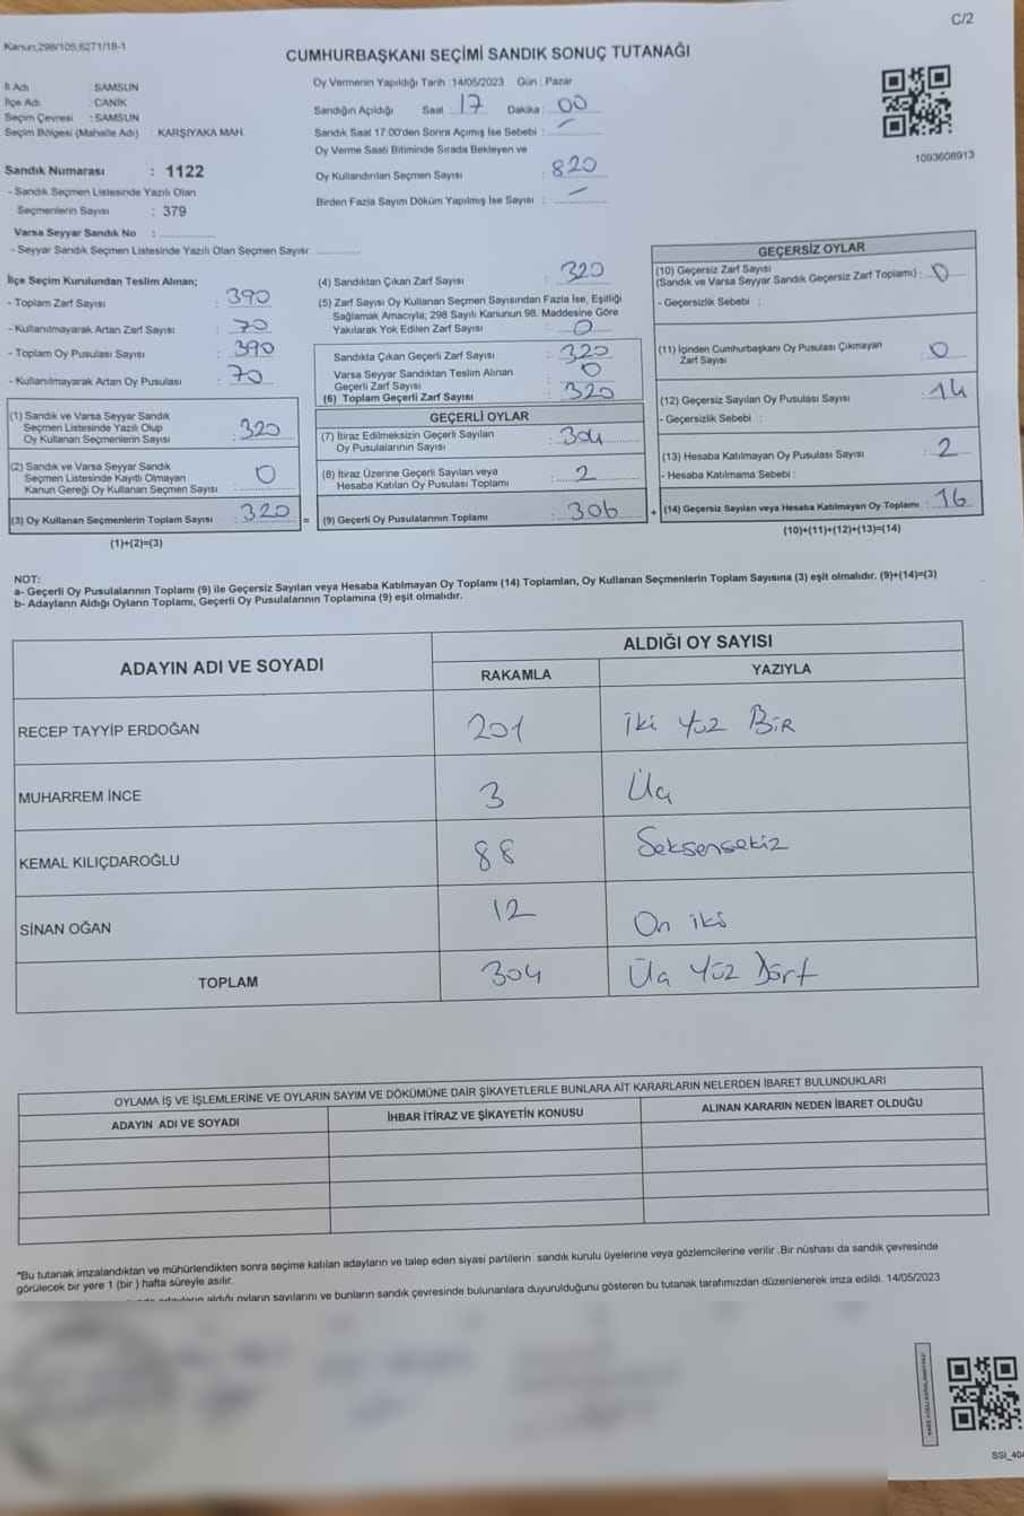 C/2
Kanun:298/105,6271/18-1
CUMHURBAŞKANI SEÇİMİ SANDIK SONUÇ TUTANAĞI
İl Adı : SAMSUN
İlçe Adı : CANİK
Seçim Çevresi : SAMSUN
Seçim Bölgesi (Mahalle Adı) KARŞIYAKA MAH.
Oy Vermenin Yapıldığı Tarih :14/05/2023 Gün : Pazar
Sandığın Açıldığı Saat : 17 Dakika : 00
Sandık Saat 17:00'den Sonra Açılmış İse Sebebi : –
Oy Verme Saati Bitiminde Sırada Bekleyen ve
Oy Kullandırılan Seçmen Sayısı : 820
Birden Fazla Sayım Döküm Yapılmış İse Sayısı : –
1093608913
Sandık Numarası : 1122
- Sandık Seçmen Listesinde Yazılı Olan
Seçmenlerin Sayısı : 379
Varsa Seyyar Sandık No :
- Seyyar Sandık Seçmen Listesinde Yazılı Olan Seçmen Sayısı
İlçe Seçim Kurulundan Teslim Alınan;
- Toplam Zarf Sayısı : 390
- Kullanılmayarak Artan Zarf Sayısı : 70
- Toplam Oy Pusulası Sayısı : 390
- Kullanılmayarak Artan Oy Pusulası : 70
(1) Sandık ve Varsa Seyyar Sandık
Seçmen Listesinde Yazılı Olup
Oy Kullanan Seçmenlerin Sayısı : 320
(2) Sandık ve Varsa Seyyar Sandık
Seçmen Listesinde Kayıtlı Olmayan
Kanun Gereği Oy Kullanan Seçmen Sayısı 0
(3) Oy Kullanan Seçmenlerin Toplam Sayısı : 320 =
(1)+(2)=(3)
(4) Sandıktan Çıkan Zarf Sayısı : 320
(5) Zarf Sayısı Oy Kullanan Seçmen Sayısından Fazla İse, Eşitliği
Sağlamak Amacıyla; 298 Sayılı Kanunun 98. Maddesine Göre
Yakılarak Yok Edilen Zarf Sayısı : 0
Sandıkta Çıkan Geçerli Zarf Sayısı : 320
Varsa Seyyar Sandıktan Teslim Alınan
Geçerli Zarf Sayısı : 0
(6) Toplam Geçerli Zarf Sayısı : 320
GEÇERLİ OYLAR
(7) İtiraz Edilmeksizin Geçerli Sayılan
Oy Pusulalarının Sayısı : 304
(8) İtiraz Üzerine Geçerli Sayılan veya
Hesaba Katılan Oy Pusulası Toplamı : 2
(9) Geçerli Oy Pusulalarının Toplamı : 306 +
GEÇERSİZ OYLAR
(10) Geçersiz Zarf Sayısı
(Sandık ve Varsa Seyyar Sandık Geçersiz Zarf Toplamı) : 0
- Geçersizlik Sebebi :
(11) İçinden Cumhurbaşkanı Oy Pusulası Çıkmayan
Zarf Sayısı : 0
(12) Geçersiz Sayılan Oy Pusulası Sayısı : 14
- Geçersizlik Sebebi :
(13) Hesaba Katılmayan Oy Pusulası Sayısı : 2
- Hesaba Katılmama Sebebi :
(14) Geçersiz Sayılan veya Hesaba Katılmayan Oy Toplamı : 16
(10)+(11)+(12)+(13)=(14)
NOT:
a- Geçerli Oy Pusulalarının Toplamı (9) ile Geçersiz Sayılan veya Hesaba Katılmayan Oy Toplamı (14) Toplamları, Oy Kullanan Seçmenlerin Toplam Sayısına (3) eşit olmalıdır. (9)+(14)=(3)
b- Adayların Aldığı Oyların Toplamı, Geçerli Oy Pusulalarının Toplamına (9) eşit olmalıdır.
ADAYIN ADI VE SOYADI
ALDIĞI OY SAYISI
RAKAMLA YAZIYLA
RECEP TAYYİP ERDOĞAN 201 İki Yüz Bir
MUHARREM İNCE 3 Üç
KEMAL KILIÇDAROĞLU 88 Seksensekiz
SİNAN OĞAN 12 On iki
TOPLAM 304 Üç Yüz Dört
OYLAMA İŞ VE İŞLEMLERİNE VE OYLARIN SAYIM VE DÖKÜMÜNE DAİR ŞİKAYETLERLE BUNLARA AİT KARARLARIN NELERDEN İBARET BULUNDUKLARI
ADAYIN ADI VE SOYADI İHBAR İTİRAZ VE ŞİKAYETİN KONUSU ALINAN KARARIN NEDEN İBARET OLDUĞU
*Bu tutanak imzalandıktan ve mühürlendikten sonra seçime katılan adayların ve talep eden siyasi partilerin sandık kurulu üyelerine veya gözlemcilerine verilir .Bir nüshası da sandık çevresinde
görülecek bir yere 1 (bir ) hafta süreyle asılır.
adayların aldığı oyların sayılarını ve bunların sandık çevresinde bulunanlara duyurulduğunu gösteren bu tutanak tarafımızdan düzenlenerek imza edildi. 14/05/2023